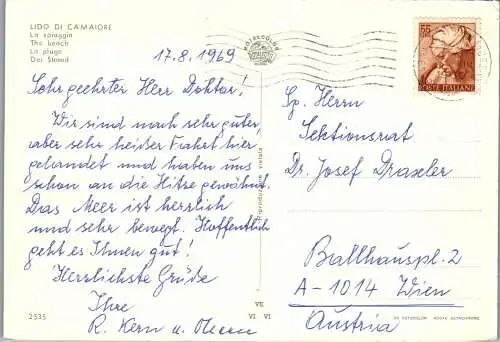 LIDO DI CAMAIORE
La spiaggia
The beach
La plage
Der Strand
17.8.1969
Sehr geehrter Herr Doktor!
Wir sind nach sehr guter,
aber sehr heißer Fahrt hier
gelandet und haben uns
schon an die Hitze gewöhnt.
Das Meer ist herrlich
und sehr bewegt. Hoffentlich
geht es Ihnen gut!
Herzlichste Grüße
Ihre
R. Kern u.
2535
VE
VI VI
Riproduzione vietata
KOTECOLOR
55
POSTE ITALIANE
Sp. Herrn
Sektionsrat
Dr. Josef Draxler
Ballhauspl. 2
A-1014 Wien
Austria